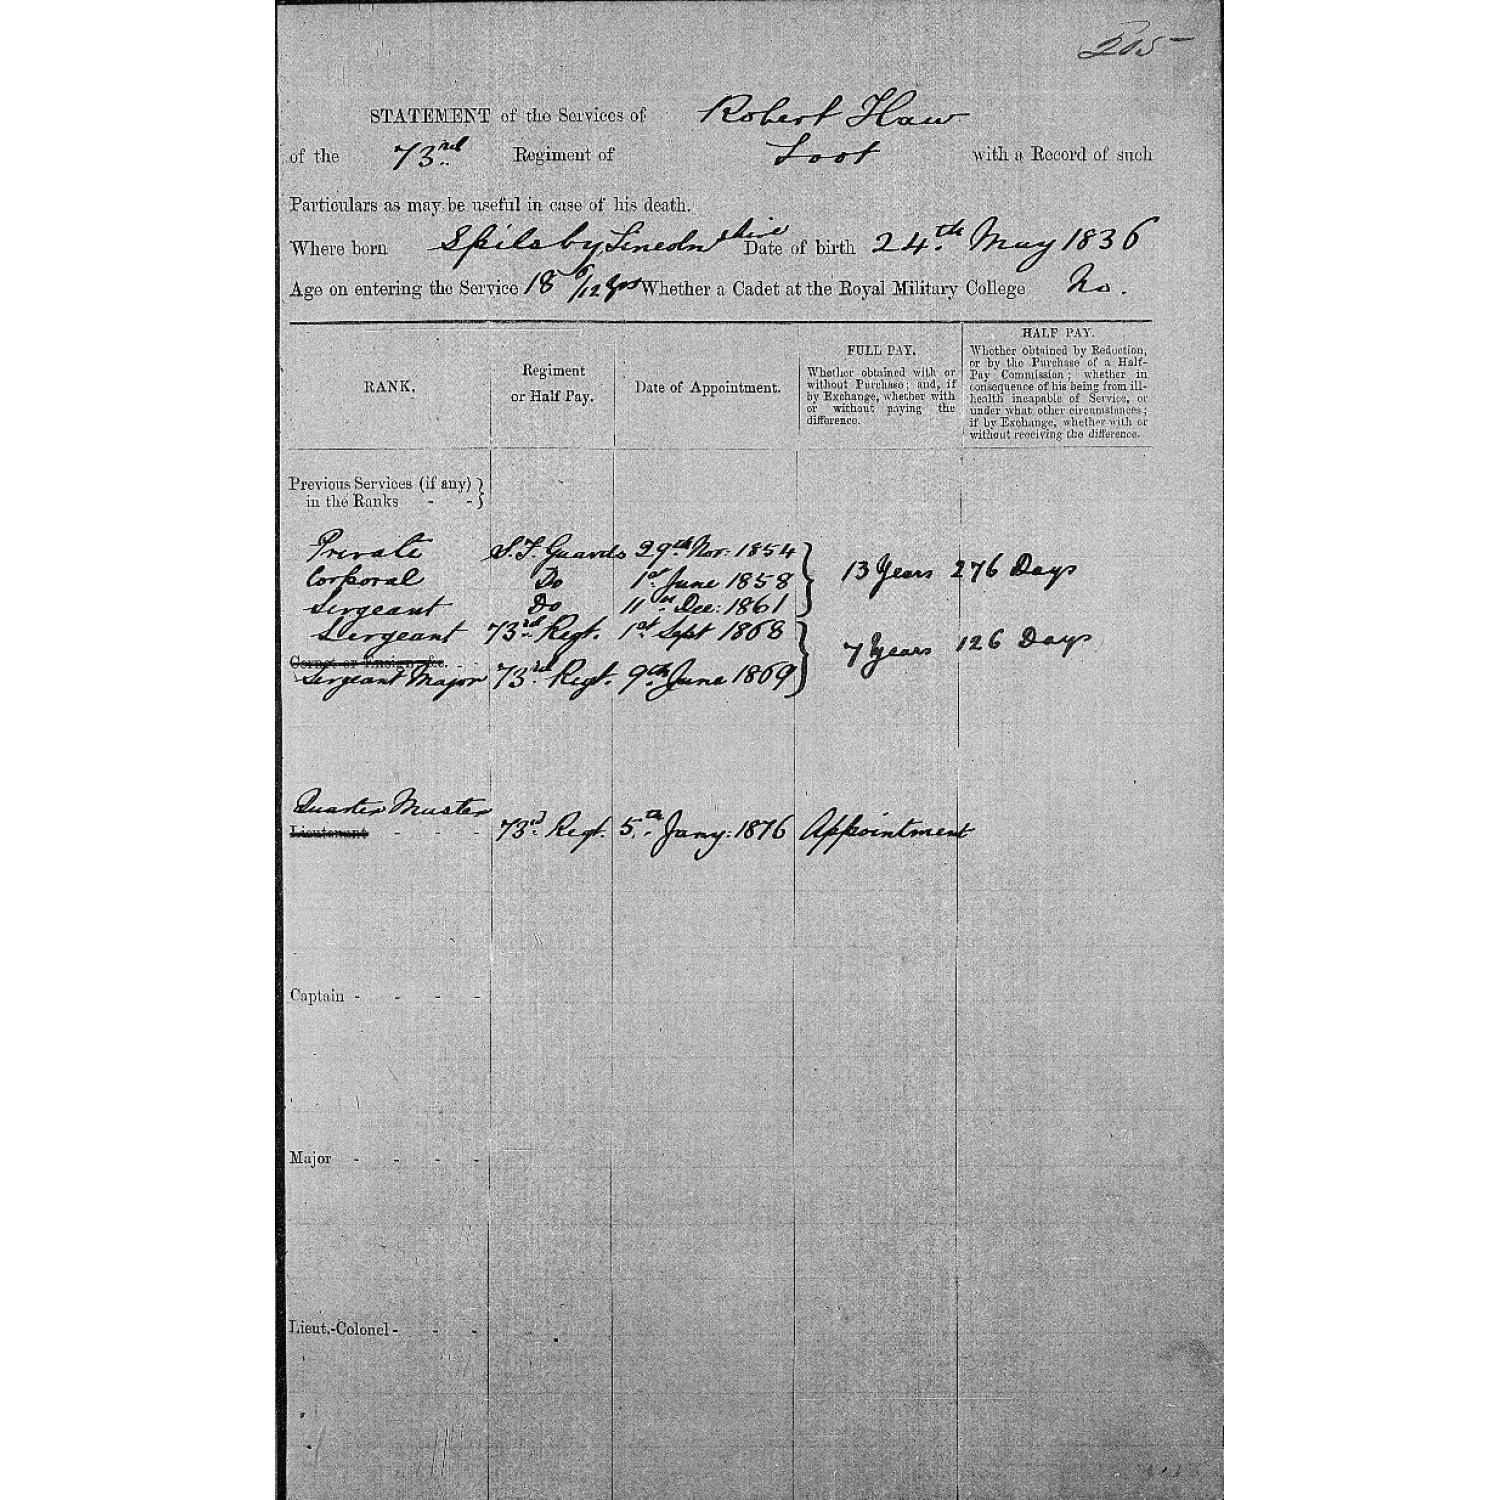 205
STATEMENT of the Services of Robert Haw
of the 73rd Regiment of Foot with a Record of such
Particulars as may be useful in case of his death.
Where born Spilsby, Lincolnshire Date of birth 24th May 1836
Age on entering the Service 18 6/12 yrs Whether a Cadet at the Royal Military College No.
RANK.
Regiment
or Half Pay.
Date of Appointment.
FULL PAY.
Whether obtained with or
without Purchase; and, if
by Exchange, whether with
or without paying the
difference.
HALF PAY.
Whether obtained by Reduction,
or by the Purchase of a Half-
Pay Commission; whether in
consequence of his being from ill-
health incapable of Service, or
under what other circumstances;
if by Exchange, whether with or
without receiving the difference.
Previous Services (if any)
in the Ranks - -
Private S. F. Guards 29th Nov: 1854
Corporal Do 1st June 1858 13 Years 276 Days
Sergeant Do 11th Dec: 1861
Sergeant 73rd Regt. 1st Sept 1868
7 Years 126 Days
Cornet or Ensign, &c. - -
Sergeant Major 73rd Regt. 9th June 1869
Quarter Master
Lieutenant - - - 73rd Regt. 5th Jany: 1876 Appointment
Captain - - - -
Major - - - -
Lieut.-Colonel - - -